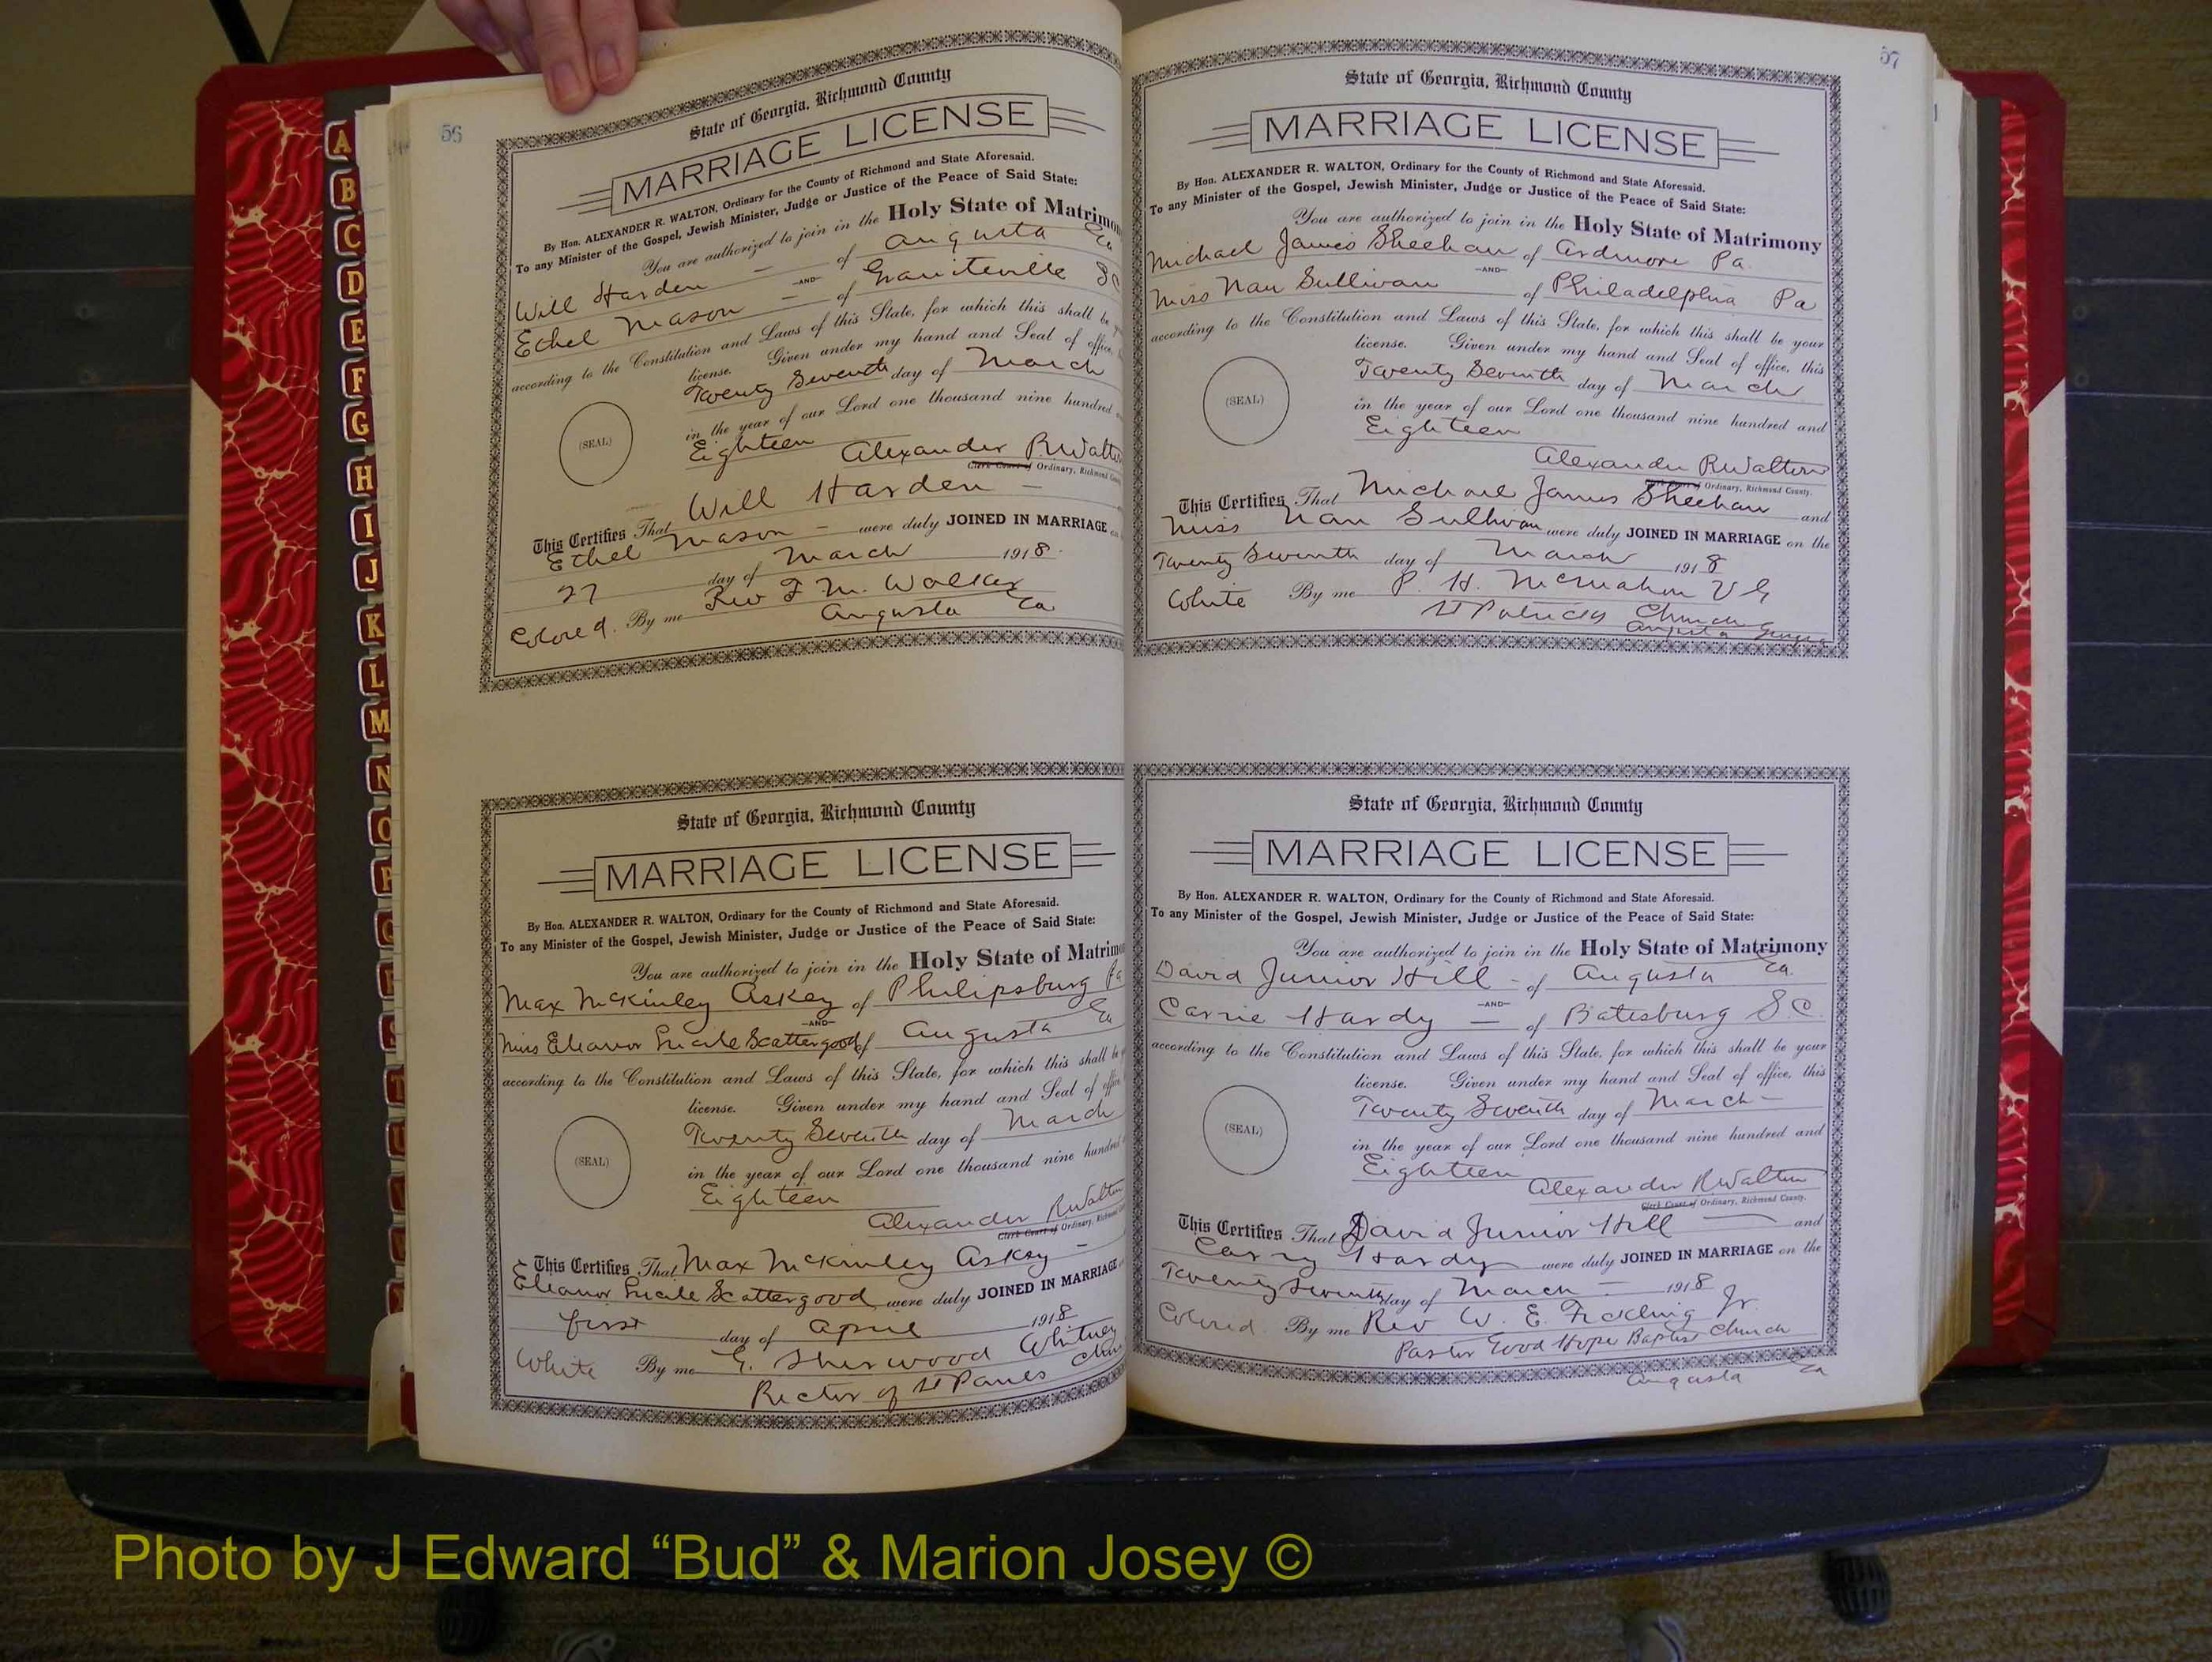 56
State of Georgia, Richmond County
MARRIAGE LICENSE
By Hon. ALEXANDER R. WALTON, Ordinary for the County of Richmond and State Aforesaid.
To any Minister of the Gospel, Jewish Minister, Judge or Justice of the Peace of Said State:
You are authorized to join in the Holy State of Matrimo
Will Harden — of Augusta Ga
—AND—
Ethel Mason — of Graniteville S C
according to the Constitution and Laws of this State, for which this shall be
license. Given under my hand and Seal of office,
Twenty Seventh day of March
in the year of our Lord one thousand nine hundred
Eighteen
(SEAL)
Alexander R Walton
Clerk Court of Ordinary, Richmond
This Certifies That Will Harden —
Ethel Mason — were duly JOINED IN MARRIAGE
27 day of March 1918
Colored. By me Rev F. M. Walker
Augusta Ga
State of Georgia, Richmond County
MARRIAGE LICENSE
By Hon. ALEXANDER R. WALTON, Ordinary for the County of Richmond and State Aforesaid.
To any Minister of the Gospel, Jewish Minister, Judge or Justice of the Peace of Said State:
You are authorized to join in the Holy State of Matrimo
Max McKinley Askey of Philipsburg Pa
—AND—
Miss Eleanor Lucile Scattergood of Augusta Ga
according to the Constitution and Laws of this State, for which this shall be
license. Given under my hand and Seal of office
Twenty Seventh day of March
in the year of our Lord one thousand nine hundred
Eighteen
(SEAL)
Alexander R Walton
Clerk Court of Ordinary, Richmond
This Certifies That Max McKinley Askey —
Eleanor Lucile Scattergood were duly JOINED IN MARRIAGE
first day of April 1918
White By me G. Sherwood Whitney
Rector of St Pauls
57
State of Georgia, Richmond County
MARRIAGE LICENSE
By Hon. ALEXANDER R. WALTON, Ordinary for the County of Richmond and State Aforesaid.
To any Minister of the Gospel, Jewish Minister, Judge or Justice of the Peace of Said State:
You are authorized to join in the Holy State of Matrimony
Michael James Sheehan of Ardmore Pa.
—AND—
Miss Nan Sullivan of Philadelphia Pa
according to the Constitution and Laws of this State, for which this shall be your
license. Given under my hand and Seal of office, this
Twenty Seventh day of March
in the year of our Lord one thousand nine hundred and
Eighteen
(SEAL)
Alexander R Walton
Clerk Court of Ordinary, Richmond County.
This Certifies That Michael James Sheehan and
Miss Nan Sullivan were duly JOINED IN MARRIAGE on the
Twenty Seventh day of March 1918
White By me P. H. McMahon V G
St Patricks Church
Augusta Georgia
State of Georgia, Richmond County
MARRIAGE LICENSE
By Hon. ALEXANDER R. WALTON, Ordinary for the County of Richmond and State Aforesaid.
To any Minister of the Gospel, Jewish Minister, Judge or Justice of the Peace of Said State:
You are authorized to join in the Holy State of Matrimony
David Junior Hill - of Augusta Ga.
—AND—
Carrie Hardy — of Batesburg S.C.
according to the Constitution and Laws of this State, for which this shall be your
license. Given under my hand and Seal of office, this
Twenty Seventh day of March -
in the year of our Lord one thousand nine hundred and
Eighteen
(SEAL)
Alexander R Walton
Clerk Court of Ordinary, Richmond County.
This Certifies That David Junior Hill — and
Carry Hardy were duly JOINED IN MARRIAGE on the
Twenty Seventh day of March — 1918
Colored By me Rev W. E. Fickling Jr.
Pastor Good Hope Baptist Church
Augusta Ga
A
B
C
D
E
F
G
H
I
J
K
L
M
N
O
P
Q
R
S
T
U
Photo by J Edward “Bud” & Marion Josey ©